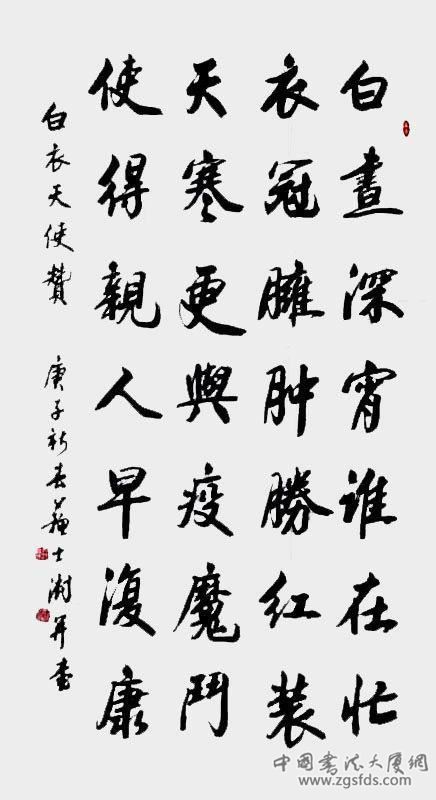 白晝深宵谁在忙
衣冠臃肿勝红装
天寒更與疫魔鬥
使得親人早復康
白衣天使贊 庚子新春蘇士澍并書
中國書法大廈網
www.zgsfds.com